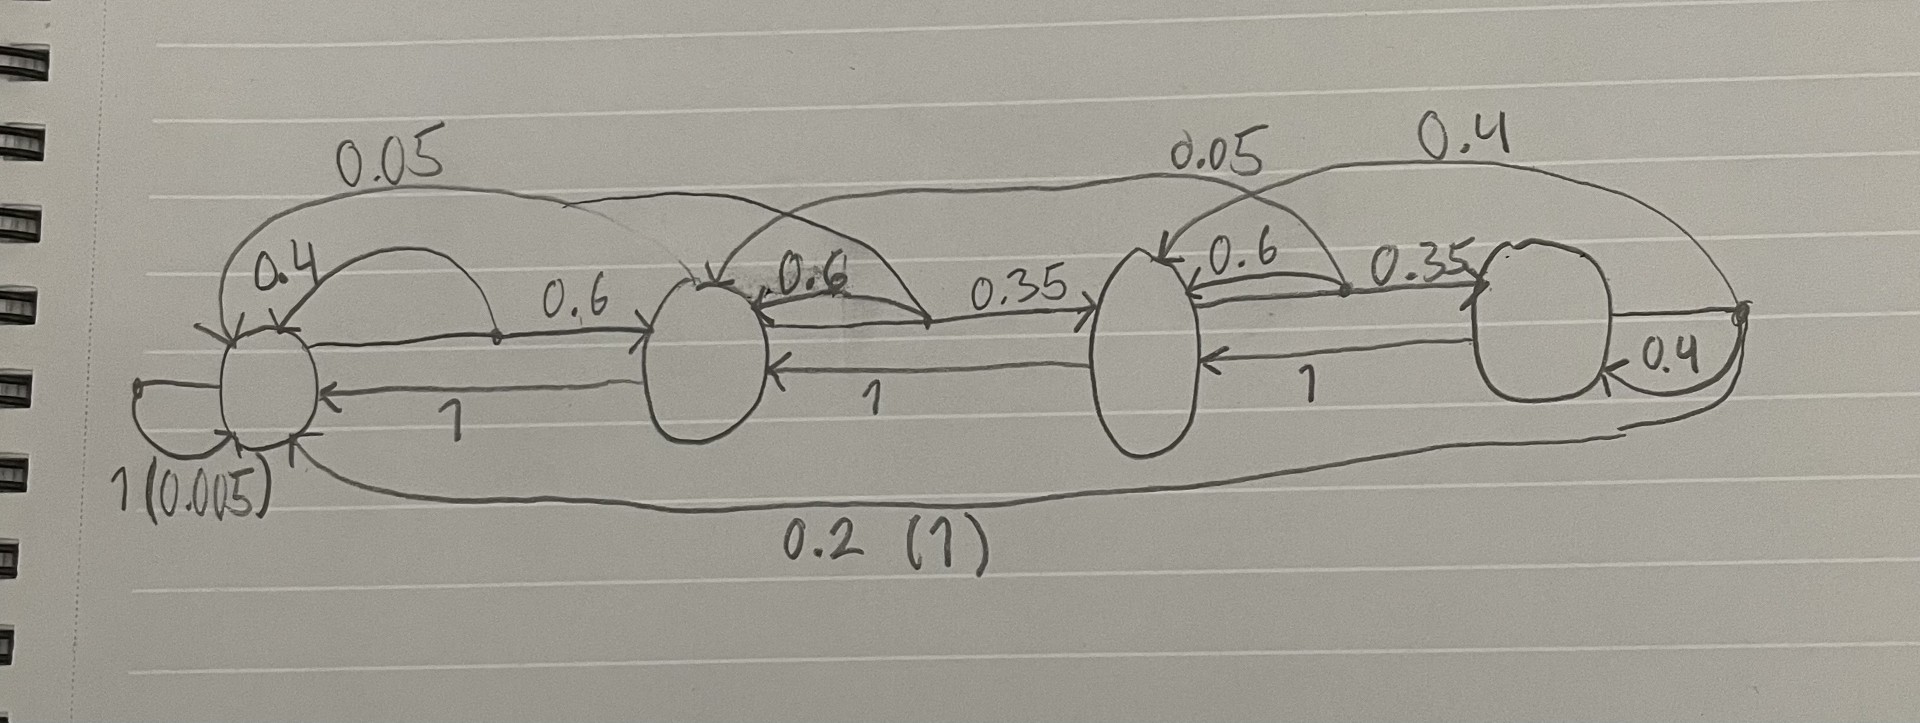 0.05 0.05 0.4
0.4 0.6 0.6 0.35 0.6 0.35
0.4
1 1 1
1(0.005)
0.2 (1)